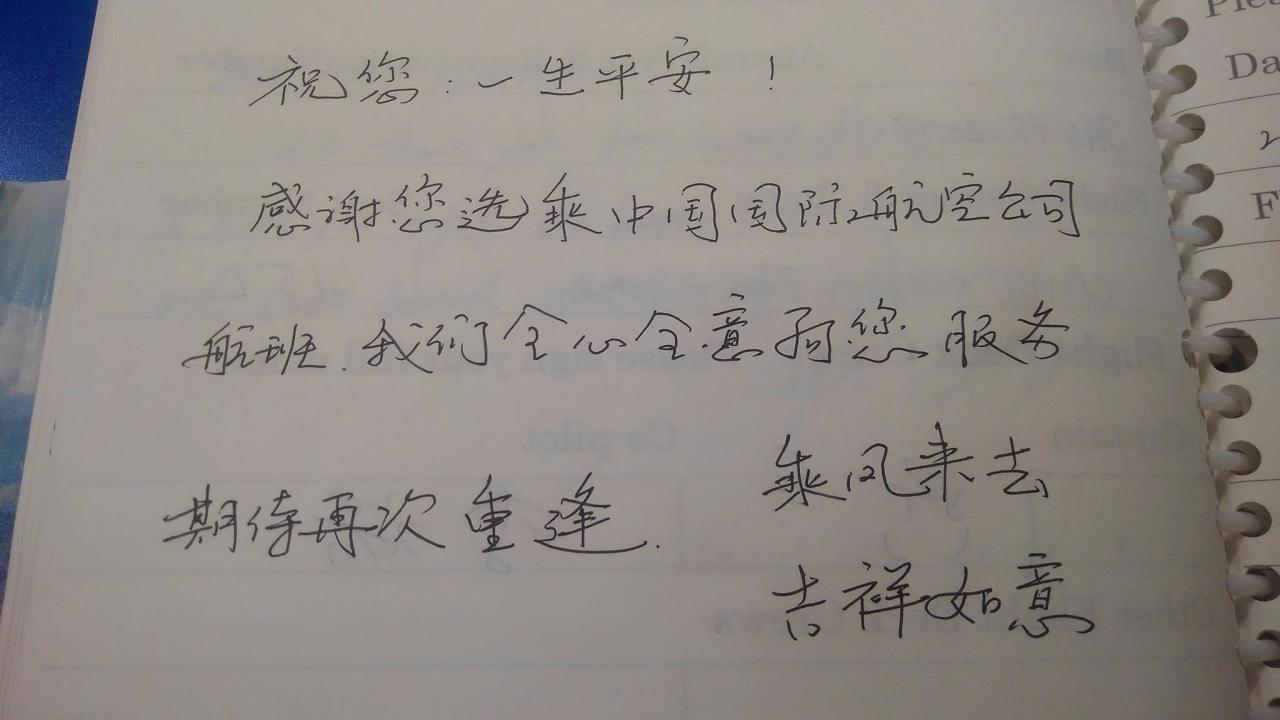 祝您:一生平安!
感谢您选乘中国国际航空公司
航班.我们全心全意为您服务
期待再次重逢.
乘风来去
吉祥如意
Plea
Da
F